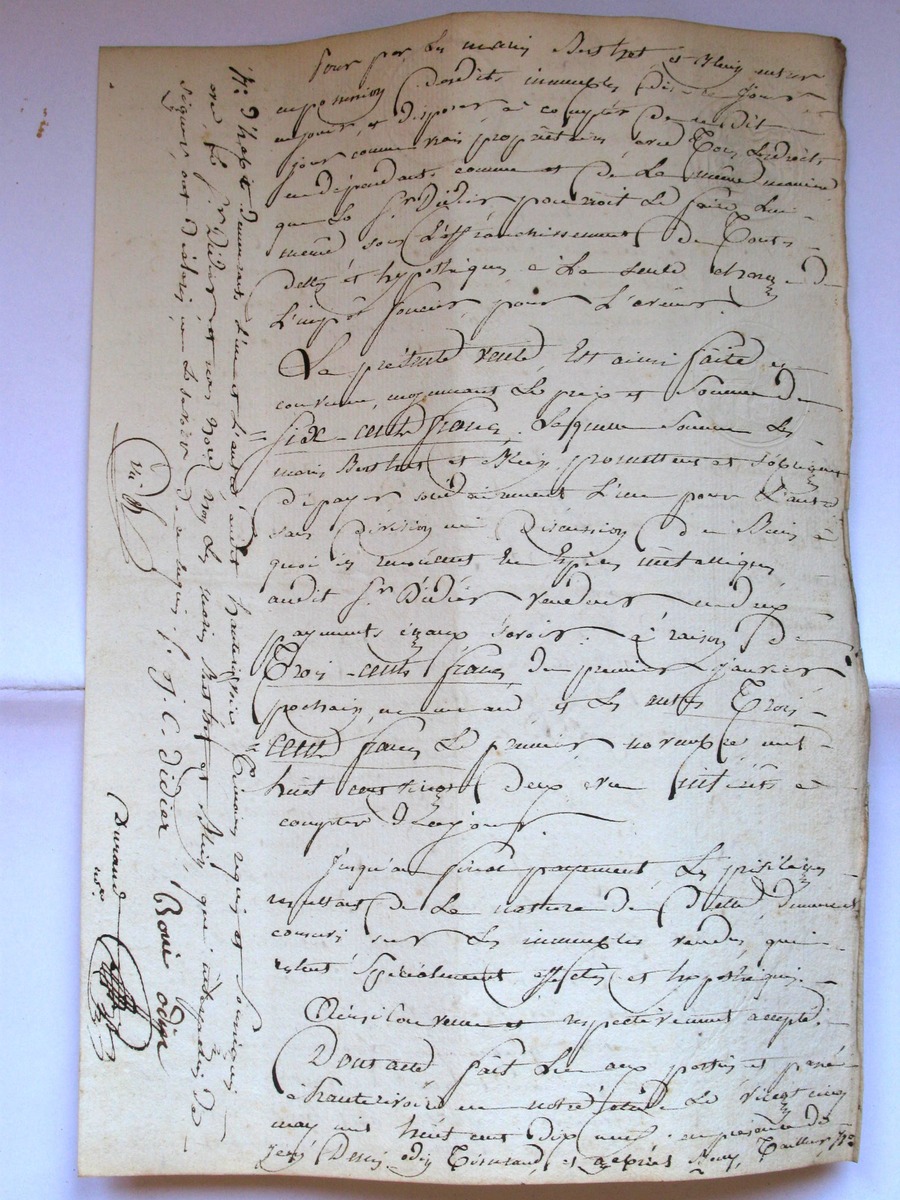 Pour par les mariés Berthet et entrer
en possession desdits immeubles dès ce jour
en jouir, et disposer à compter de cedit
jour comme vrais propriétaires, avec tous les droits
en dépendants, comme et de la même manière
que le Sr Didier pourroit le faire lui
même sous l'affranchissement de toutes
dettes et hypothèques à la seule charge de
l'impôt foncier pour l'avenir.
La présente vente est ainsi faite et
convenue, moyennant le prix et somme de
Six cents francs, laquelle somme les
mariés Berthet et promettent et s'obligent
de payer solidairement l'un pour l'autre
sans division ni discussion de Biens à
quoi ils renoncent en Espèces métalliques
audit Sr Didier vendeur en deux
payments égaux savoir : à raison de
Trois cents francs du premier janvier
prochain, en un an et les autres Trois
cents francs le premier novembre mil
huit cent vingt deux avec intérêts à
compter de ce jour.
Jusqu'au final payement, les privilèges
résultant de la nature de dette demeurent
conservés sur les immeubles vendus, qui
restent spécialement affectés et hypothéqués.
Ainsi convenu et respectivement accepté.
Dont acte fait lu aux parties et passé
à hauterivoire en notre étude le vingt cinq
may mil huit cent dix neuf : en présence de
Odin Tisserand, et Tailleur
d'habit demeurants l'un et l'autre audit hauterivoire témoins requis et soussignés
avec le Sr Didier et nous Not. non les mariés Berthet et qui interpellés de
signer, ont déclaré ne le savoir de ce requis. J. C. Didier
Odin
Durand
nre